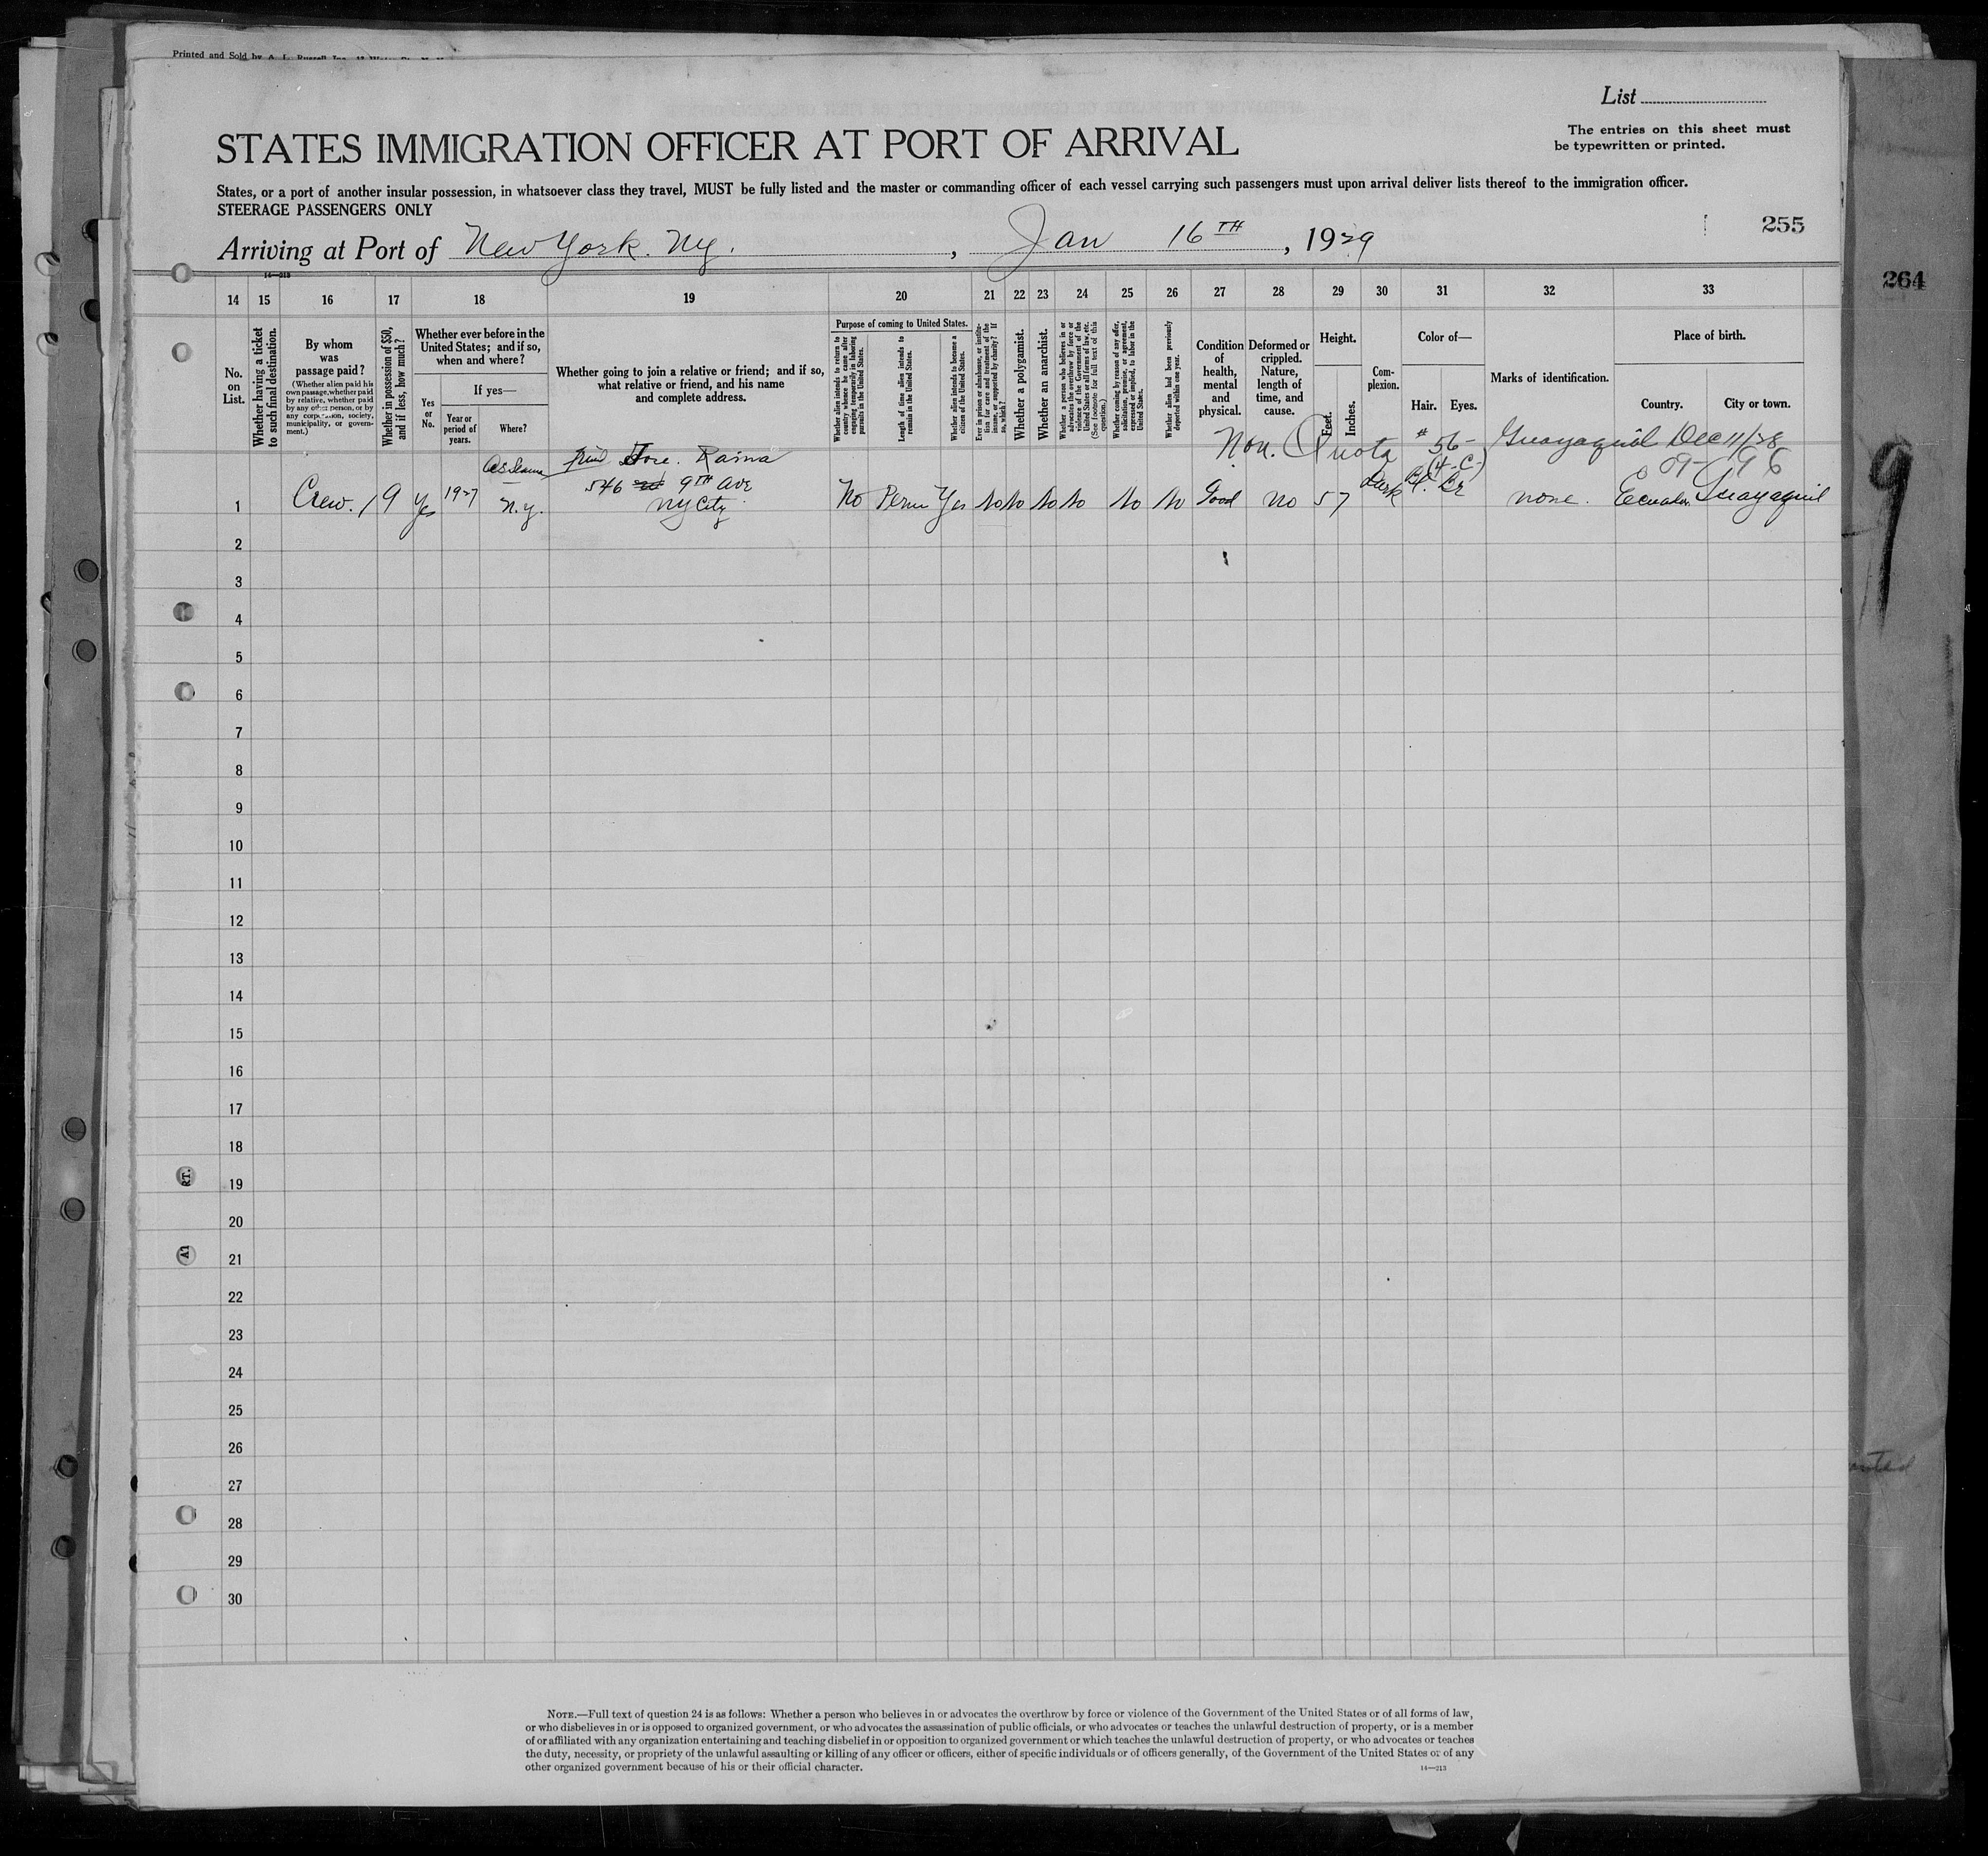 Printed and Sold by A. L. Russell Inc.
List
The entries on this sheet must
be typewritten or printed.
STATES IMMIGRATION OFFICER AT PORT OF ARRIVAL
States, or a port of another insular possession, in whatsoever class they travel, MUST be fully listed and the master or commanding officer of each vessel carrying such passengers must upon arrival deliver lists thereof to the immigration officer.
STEERAGE PASSENGERS ONLY
255
Arriving at Port of New York. Ny. , Jan 16TH , 1929
14—213
264
14 15 16 17 18 19 20 21 22 23 24 25 26 27 28 29 30 31 32 33
No. on List.
Whether having a ticket to such final destination.
By whom was passage paid?
(Whether alien paid his own passage, whether paid by relative, whether paid by any other person, or by any corporation, society, municipality, or government.)
Whether in possession of $50, and if less, how much?
Whether ever before in the United States; and if so, when and where?
Yes or No.
If yes—
Year or period of years.
Where?
Whether going to join a relative or friend; and if so, what relative or friend, and his name and complete address.
Purpose of coming to United States.
Whether alien intends to return to country whence he came after engaging temporarily in laboring pursuits in the United States.
Length of time alien intends to remain in the United States.
Whether alien intends to become a citizen of the United States.
Ever in prison or almshouse, or institution for care and treatment of the insane, or supported by charity? If so, which?
Whether a polygamist.
Whether an anarchist.
Whether a person who believes in or advocates the overthrow by force or violence of the Government of the United States or all forms of law, etc. (See footnote for full text of this question.)
Whether coming by reason of any offer, solicitation, promise, or agreement, expressed or implied, to labor in the United States.
Whether alien had been previously deported within one year.
Condition of health, mental and physical.
Deformed or crippled. Nature, length of time, and cause.
Height.
Feet.
Inches.
Complexion.
Color of—
Hair.
Eyes.
Marks of identification.
Place of birth.
Country.
City or town.
Non. Quota # 56- Guayaquil Dec 11/28
(4-C-)
friend Jose. Raina
546 9TH Ave
NY City
1 Crew. 19 Yes 1927 N.Y. No Perm Yes No No No No No No Good no 5 7 Dark Bl. Br none. Ecuador. Guayaquil
2
3
4
5
6
7
8
9
10
11
12
13
14
15
16
17
18
19
20
21
22
23
24
25
26
27
28
29
30
RT.
9
NOTE.—Full text of question 24 is as follows: Whether a person who believes in or advocates the overthrow by force or violence of the Government of the United States or of all forms of law,
or who disbelieves in or is opposed to organized government, or who advocates the assassination of public officials, or who advocates or teaches the unlawful destruction of property, or is a member
of or affiliated with any organization entertaining and teaching disbelief in or opposition to organized government or which teaches the unlawful destruction of property, or who advocates or teaches
the duty, necessity, or propriety of the unlawful assaulting or killing of any officer or officers, either of specific individuals or of officers generally, of the Government of the United States or of any
other organized government because of his or their official character.
14—213